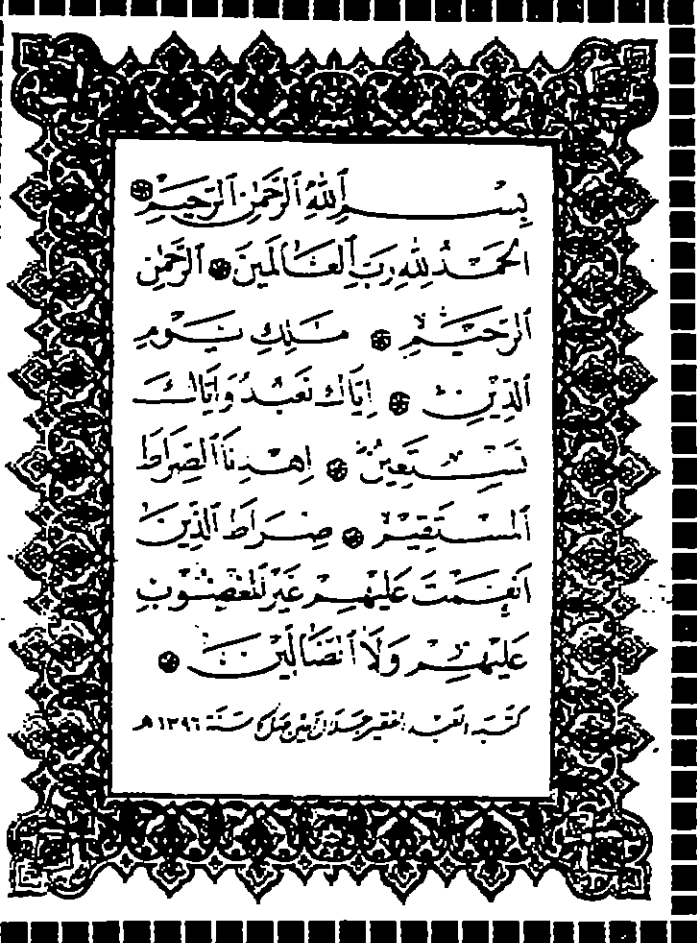 بِسْمِ ٱللَّهِ ٱلرَّحْمَٰنِ ٱلرَّحِيمِ
ٱلْحَمْدُ لِلَّهِ رَبِّ ٱلْعَالَمِينَ ٱلرَّحْمَٰنِ
ٱلرَّحِيمِ مَٰلِكِ يَوْمِ
ٱلدِّينِ إِيَّاكَ نَعْبُدُ وَإِيَّاكَ
نَسْتَعِينُ اِهْدِنَا ٱلصِّرَاطَ
ٱلْمُسْتَقِيمَ صِرَاطَ ٱلَّذِينَ
أَنْعَمْتَ عَلَيْهِمْ غَيْرِ ٱلْمَغْضُوبِ
عَلَيْهِمْ وَلَا ٱلضَّالِّينَ
كتبه العبد الفقير جلال أمين سنة ١٣٩٦ هـ